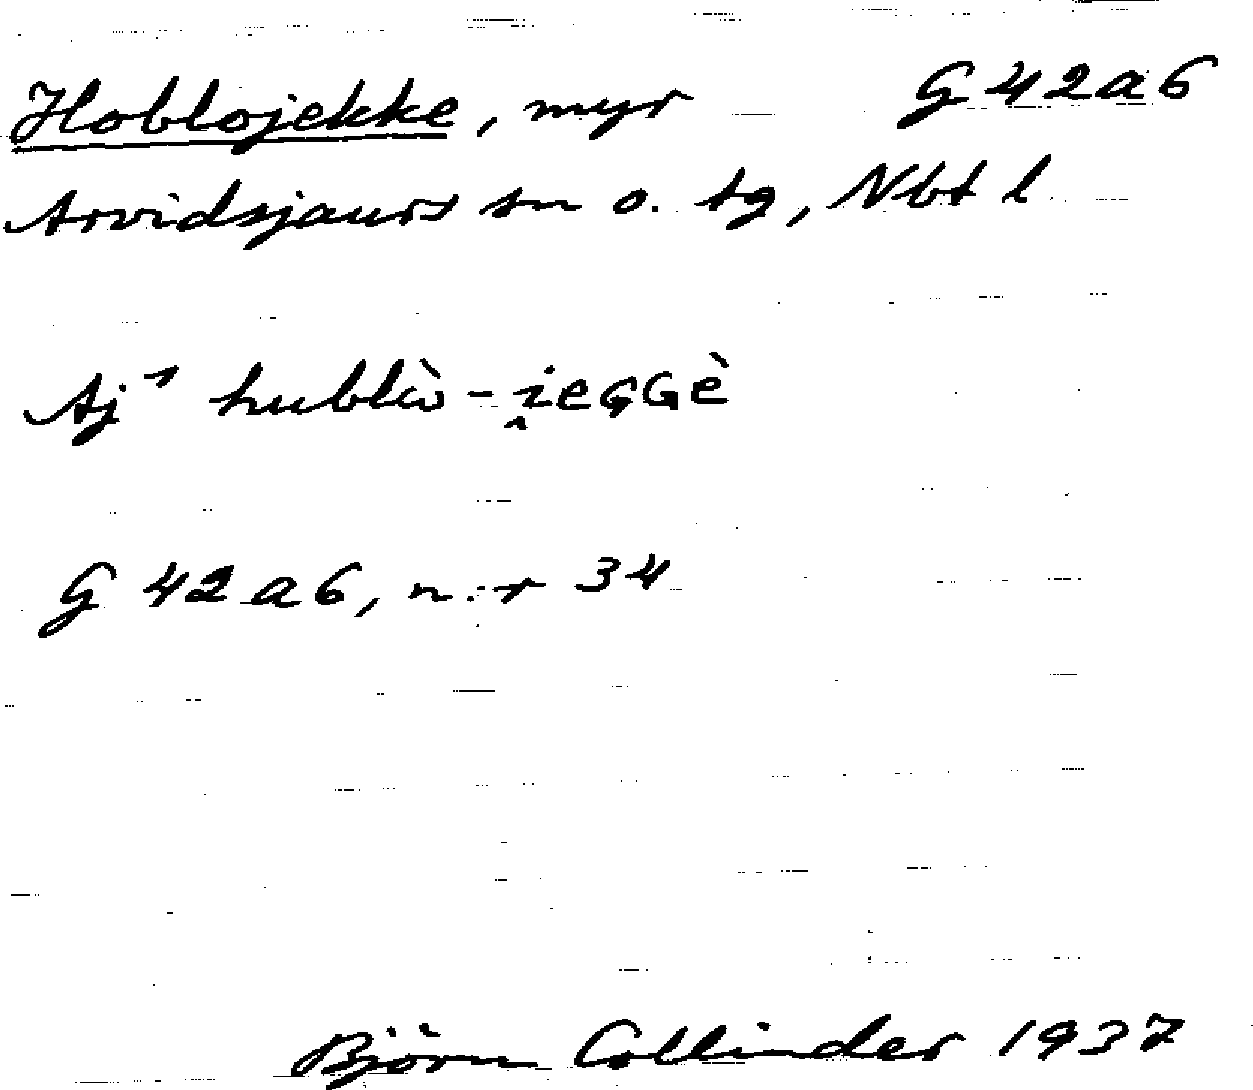 Hoblojekke, myr G 42 a 6
Arvidsjaurs sn o. tg, Nbt l
Aj¹ hublὼ - i̭eɢɢè
G 42 a 6, n:r 34
Björn Collinder 1937